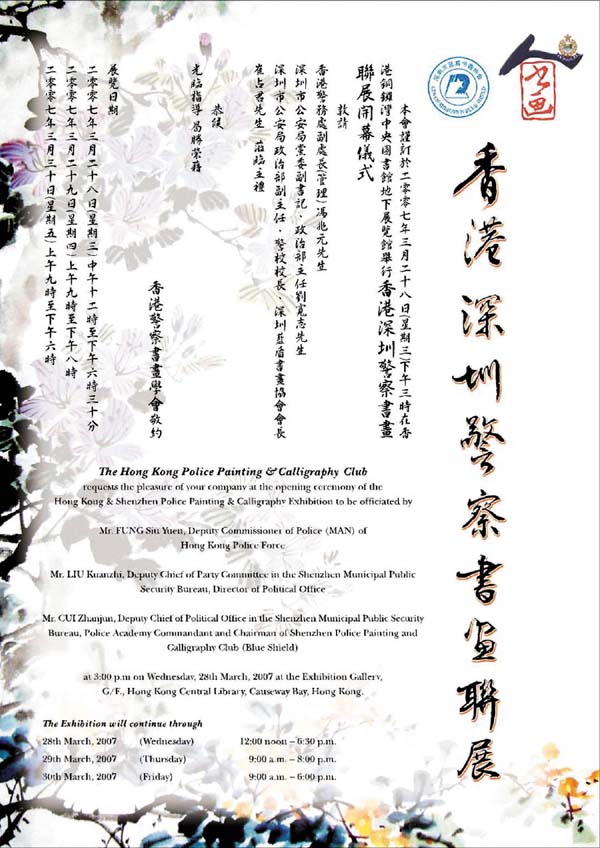 香港深圳警察書畫聯展
本會謹訂於二零零七年三月二十八日(星期三)下午三時在香
港銅鑼灣中央圖書館地下展覽館舉行香港深圳警察書畫
聯展開幕儀式
敦請
香港警務處副處長(管理)馮兆元先生
深圳市公安局黨委副書記、政治部主任劉寬志先生
深圳市公安局政治部副主任、警校校長、深圳藍盾書畫協會會長
崔占君先生 蒞臨主禮
恭候
光臨指導 爲勝榮藉
香港警察書畫學會敬約
展覽日期
二零零七年三月二十八日(星期三)中午十二時至下午六時三十分
二零零七年三月二十九日(星期四)上午九時至下午八時
二零零七年三月三十日(星期五)上午九時至下午六時
The Hong Kong Police Painting & Calligraphy Club
requests the pleasure of your company at the opening ceremony of the
Hong Kong & Shenzhen Police Painting & Calligraphy Exhibition to be officiated by
Mr. FUNG Siu Yuen, Deputy Commissioner of Police (MAN) of
Hong Kong Police Force
Mr. LIU Kuanzhi, Deputy Chief of Party Committee in the Shenzhen Municipal Public
Security Bureau, Director of Political Office
Mr. CUI Zhanjun, Deputy Chief of Political Office in the Shenzhen Municipal Public Security
Bureau, Police Academy Commandant and Chairman of Shenzhen Police Painting and
Calligraphy Club (Blue Shield)
at 3:00 p.m on Wednesday, 28th March, 2007 at the Exhibition Gallery,
G/F., Hong Kong Central Library, Causeway Bay, Hong Kong.
The Exhibition will continue through
28th March, 2007 (Wednesday) 12:00 noon – 6:30 p.m.
29th March, 2007 (Thursday) 9:00 a.m. – 8:00 p.m.
30th March, 2007 (Friday) 9:00 a.m. – 6:00 p.m.